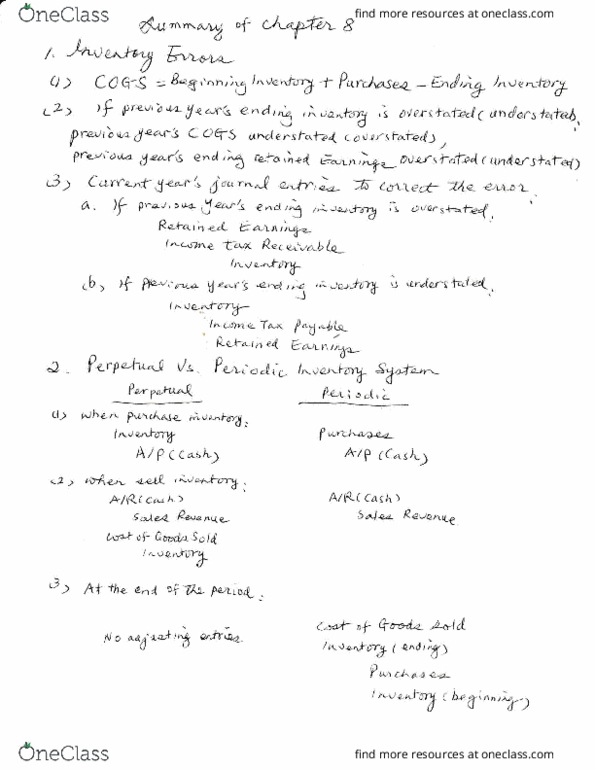 OneClass
find more resources at oneclass.com
Summary of Chapter 8
1. Inventory Errors
(1) COGS = Beginning Inventory + Purchases - Ending Inventory
(2) If previous year's ending inventory is overstated (understated),
previous year's COGS understated (overstated),
previous year's ending retained Earnings overstated (understated)
(3) Current year's journal entries to correct the error:
a. If previous year's ending inventory is overstated:
Retained Earnings
Income Tax Receivable
Inventory
(b) If previous year's ending inventory is understated:
Inventory
Income Tax Payable
Retained Earnings
2. Perpetual Vs. Periodic Inventory System
Perpetual Periodic
(1) when purchase inventory:
Inventory Purchases
A/P (Cash) A/P (Cash)
(2) when sell inventory:
A/R (Cash) A/R (Cash)
Sales Revenue Sales Revenue
Cost of Goods Sold
Inventory
(3) At the end of the period:
Cost of Goods Sold
No adjusting entries. Inventory (ending)
Purchases
Inventory (beginning)
OneClass
find more resources at oneclass.com